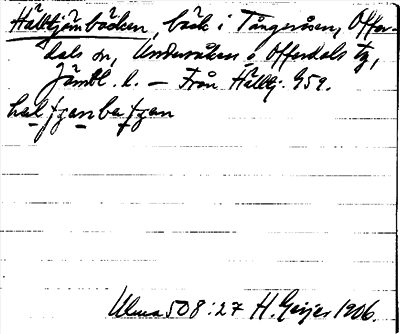 Hälltjärnbäcken, bäck i Tångeråsen, Offer-
dals sn, Undersåkers o. Offerdals tg,
Jämtl. l. — Från Hälltj. 959.
Ulma 508:27 H. Geijer 1906.